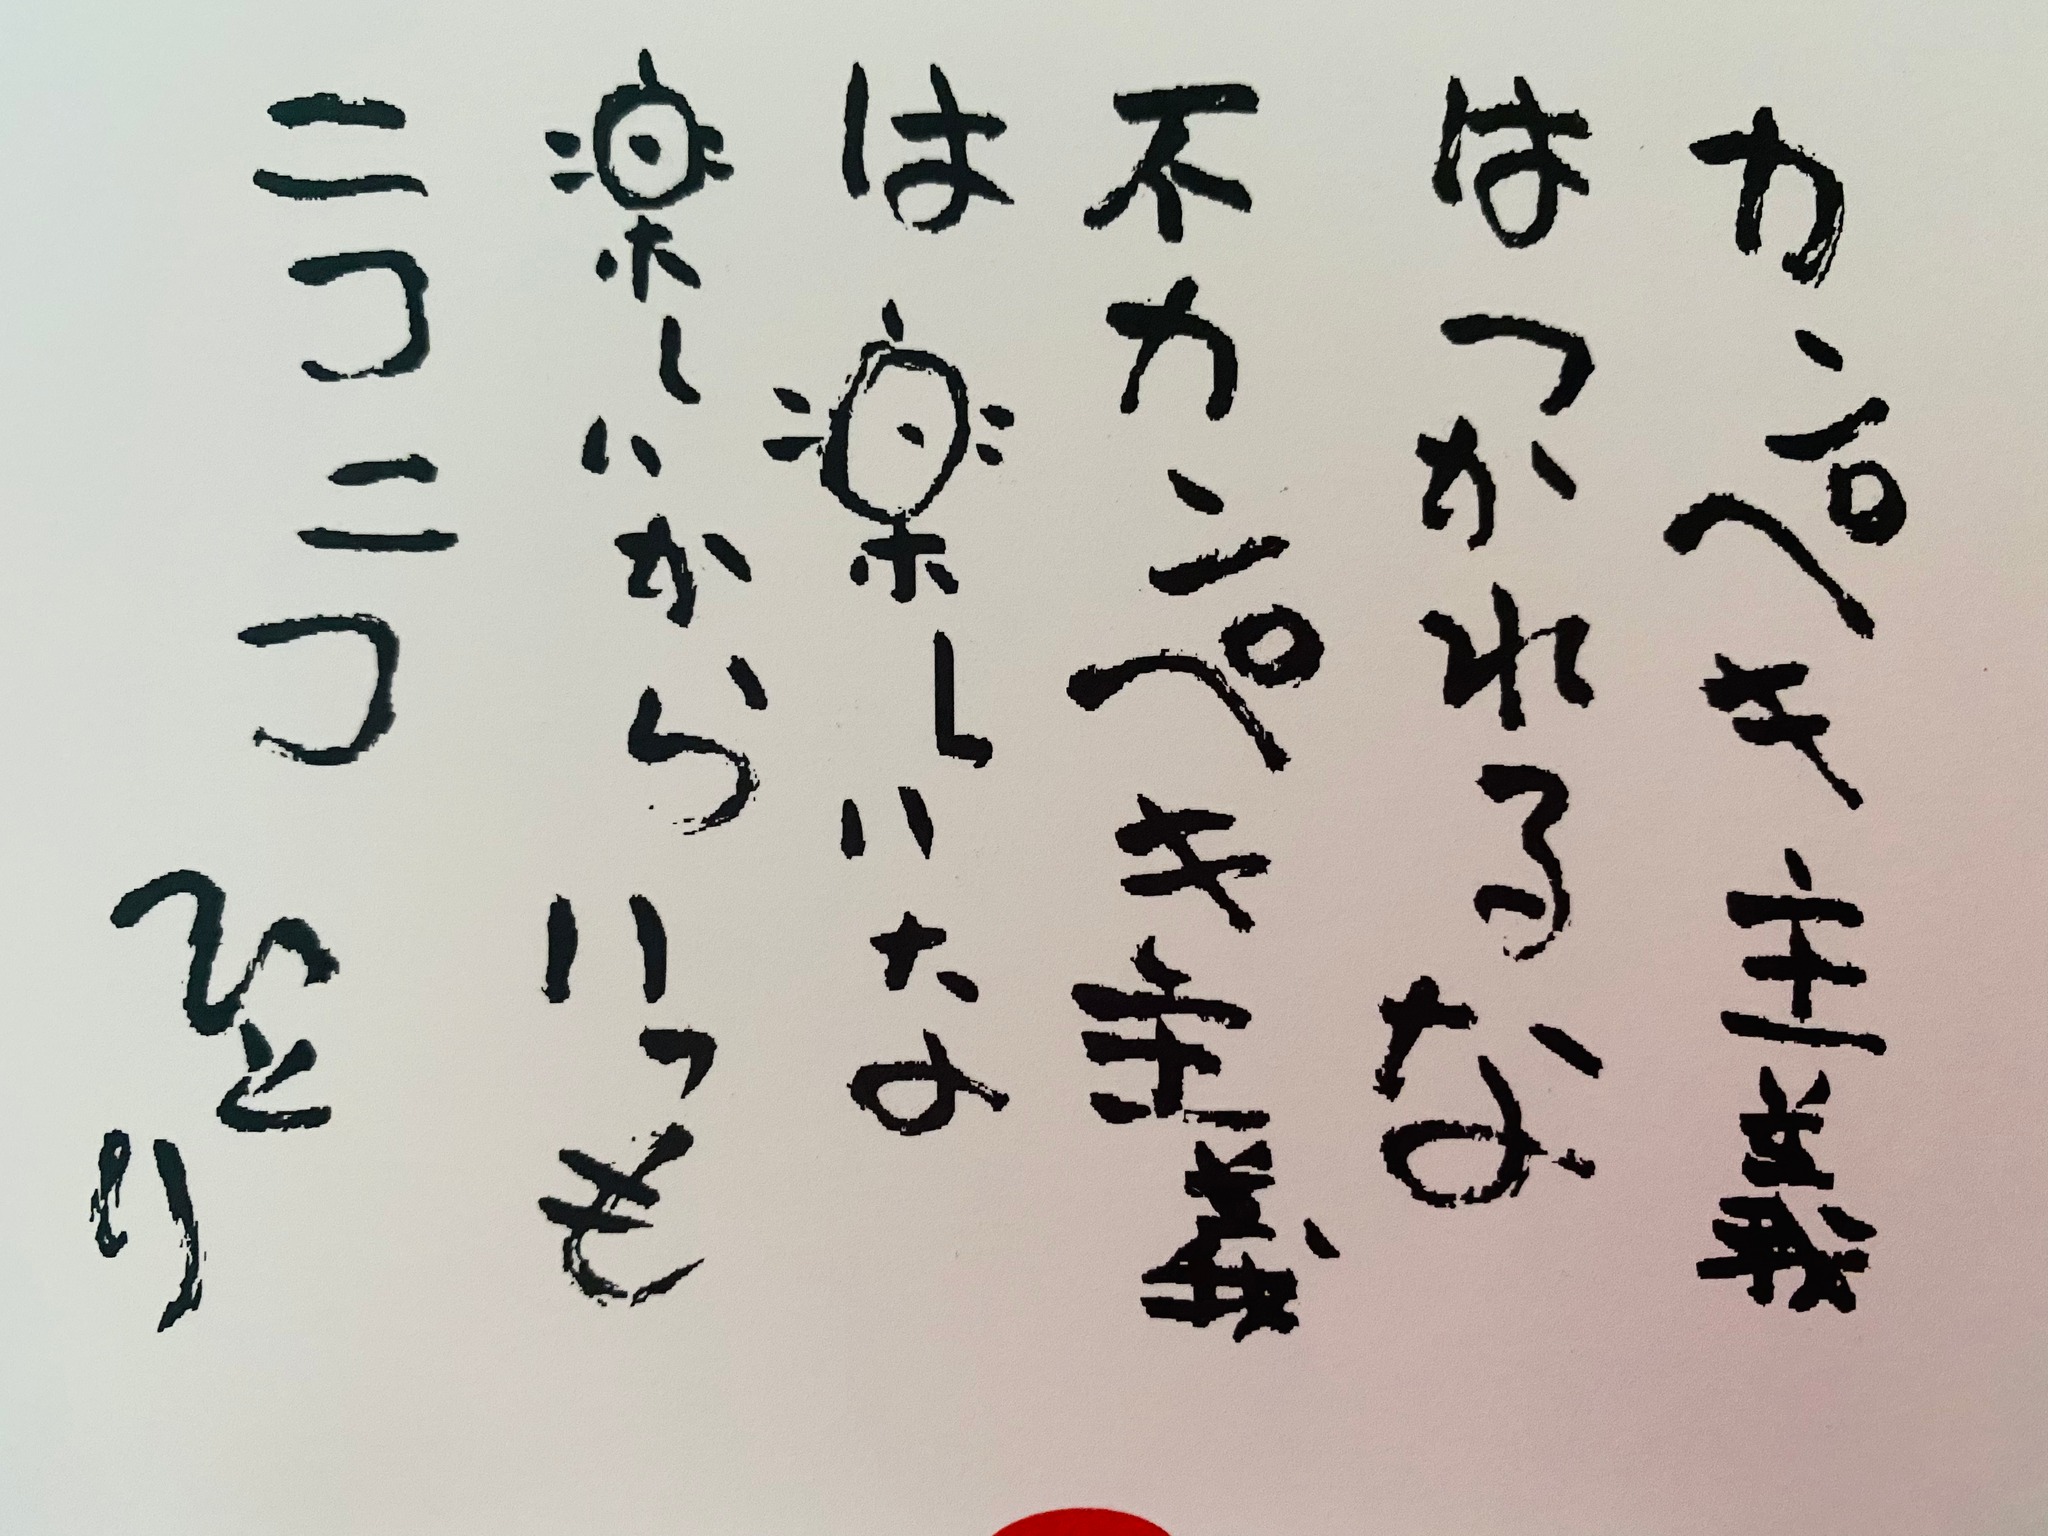 カンペキ主義
はつかれるな
不カンペキ主義
は楽しいな
楽しいからいつも
ニコニコ ひとり